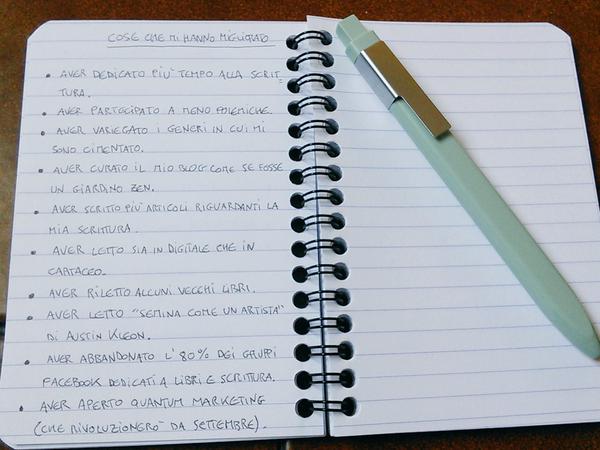 COSE CHE MI HANNO MIGLIORATO
• AVER DEDICATO PIU' TEMPO ALLA SCRIT-
TURA.
• AVER PARTECIPATO A MENO POLEMICHE.
• AVER VARIEGATO I GENERI IN CUI MI
SONO CIMENTATO.
• AVER CURATO IL MIO BLOG COME SE FOSSE
UN GIARDINO ZEN.
• AVER SCRITTO PIU' ARTICOLI RIGUARDANTI LA
MIA SCRITTURA.
• AVER LETTO SIA IN DIGITALE CHE IN
CARTACEO.
• AVER RILETTO ALCUNI VECCHI LIBRI.
• AVER LETTO "SEMINA COME UN ARTISTA"
DI AUSTIN KLEON.
• AVER ABBANDONATO L'80% DEI GRUPPI
FACEBOOK DEDICATI A LIBRI E SCRITTURA.
• AVER APERTO QUANTUM MARKETING
(CHE RIVOLUZIONERO' DA SETTEMBRE).